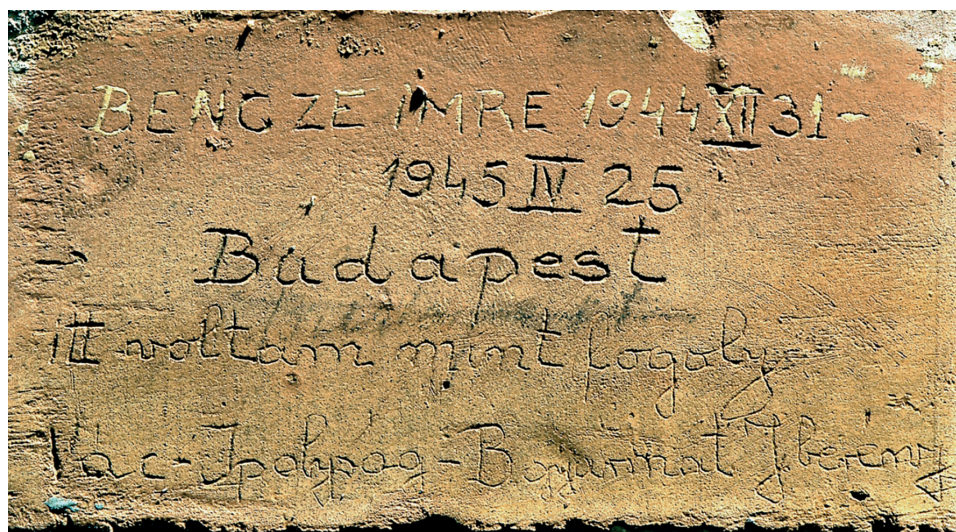 BENCZE IMRE 1944 XII 31-
1945 IV 25
Budapest
itt voltam mint fogoly
Vác-Ipolyság-B gyarmat Jberény